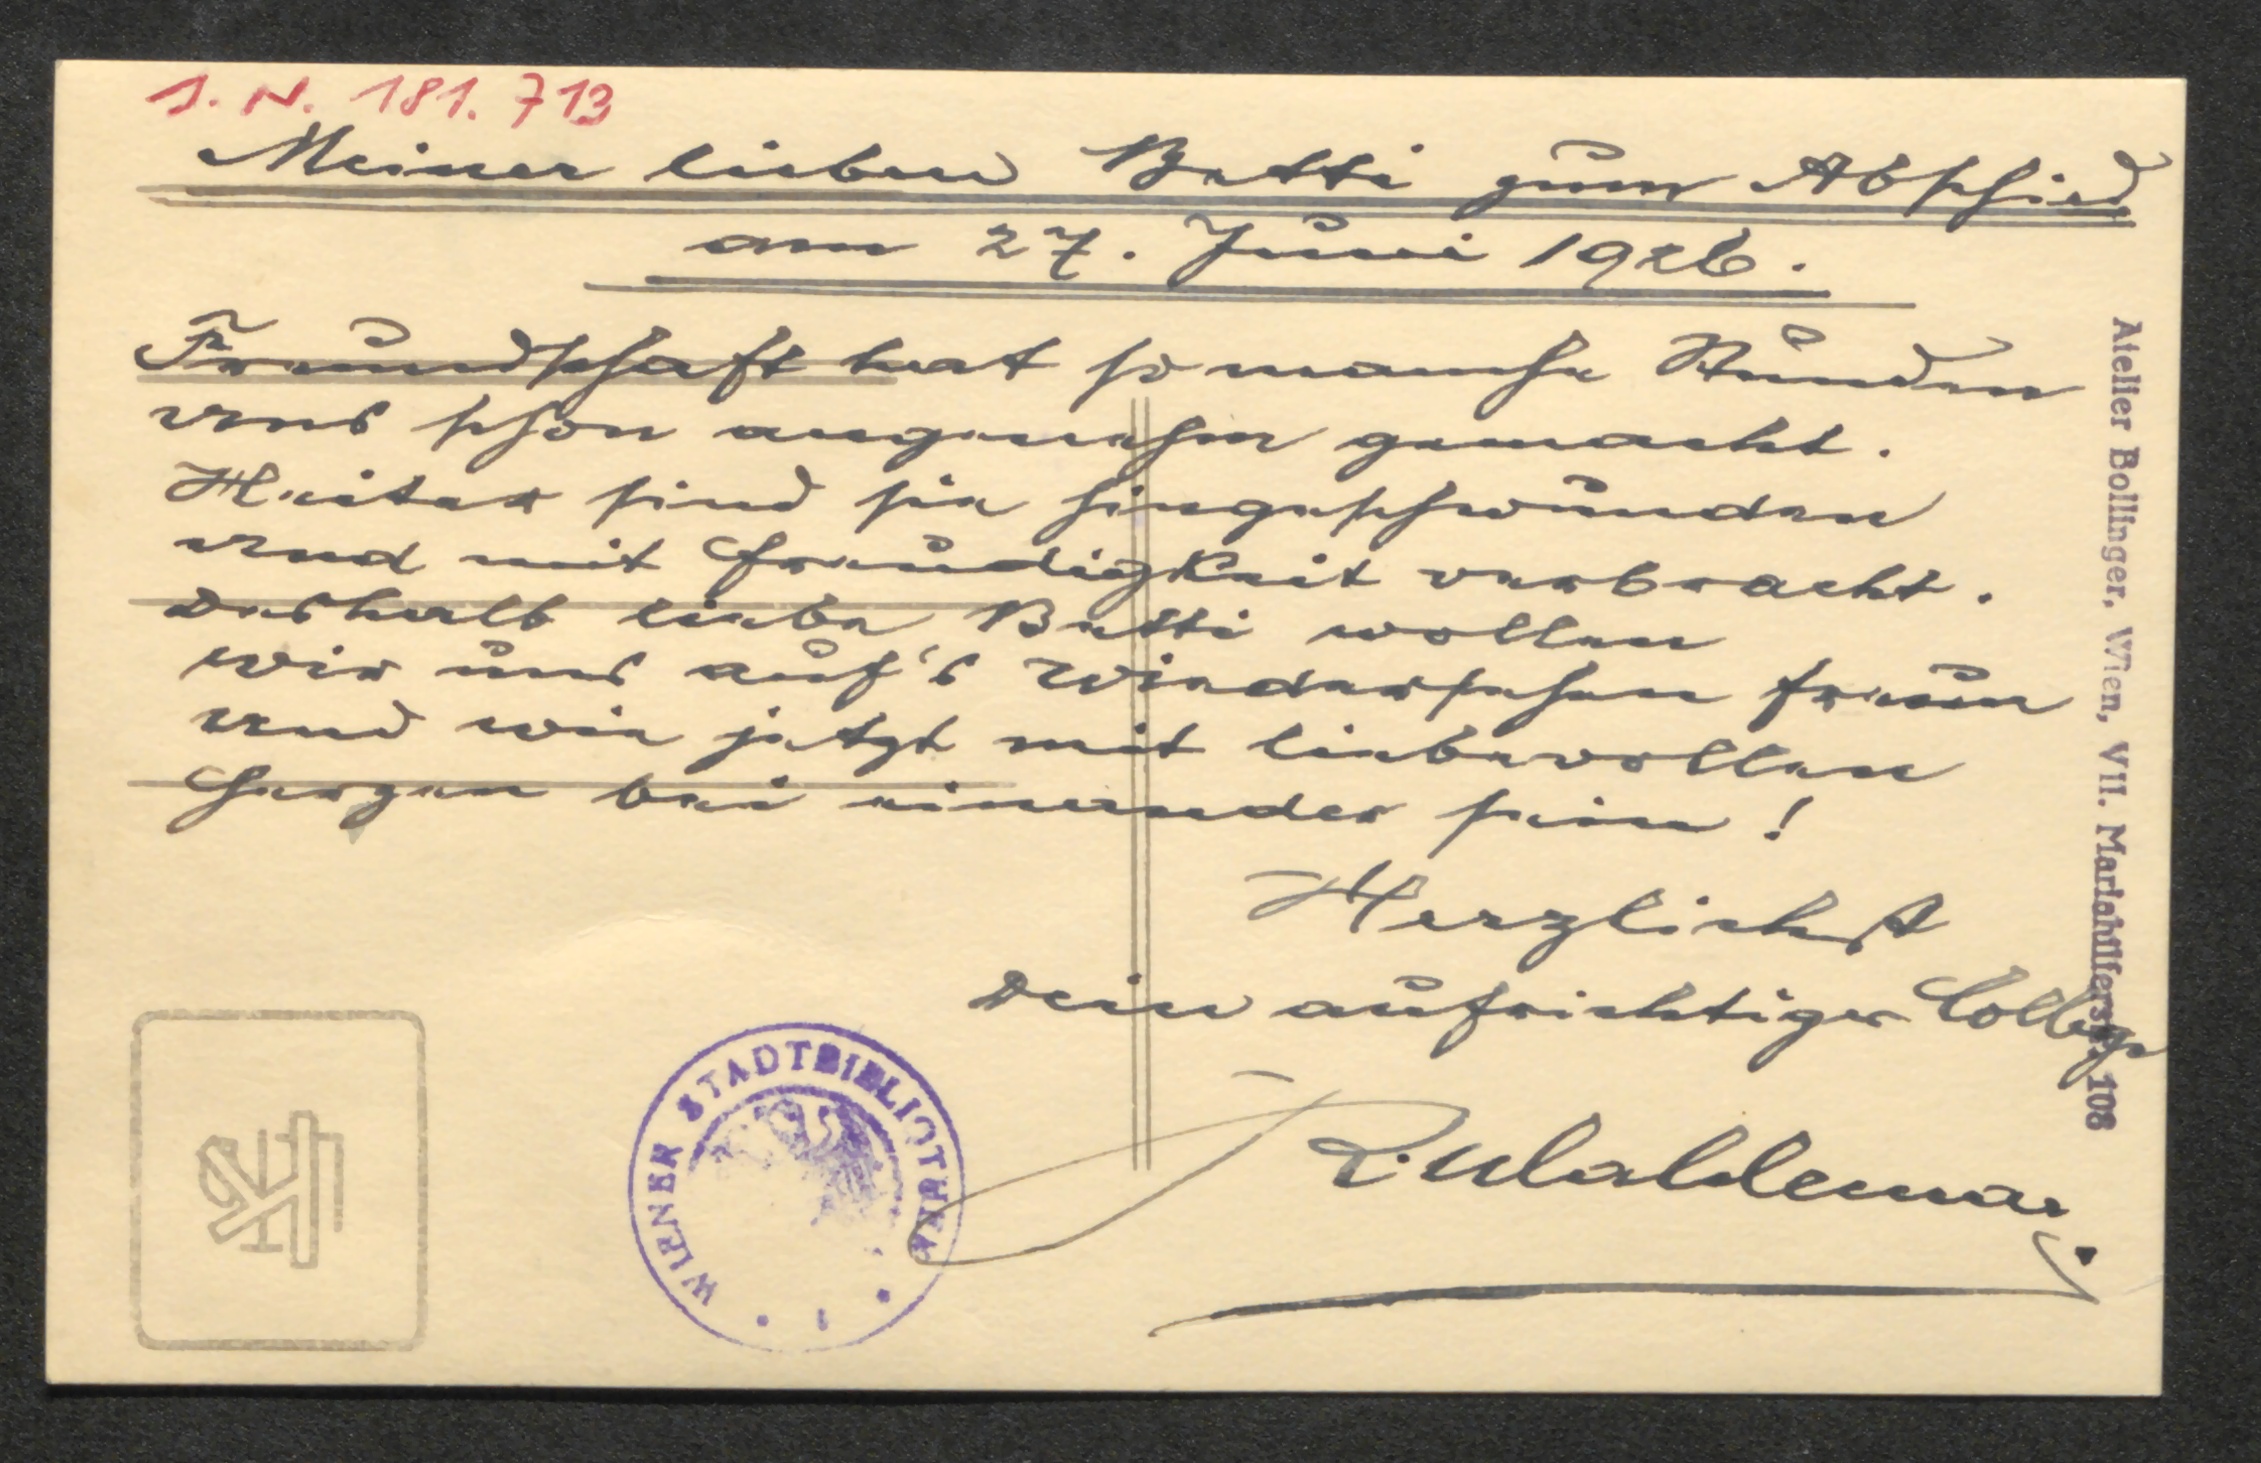 J. N. 181.713
Meiner lieben Betti zum Abschied
am 27. Juni 1926.
Freundschaft hat so manche Stunden
uns schon angenehm gemacht.
Heiter sind sie hingeschwunden
und mit Freudigkeit verbracht.
Deshalb liebe Betti wollen
wir uns auf's Wiedersehen freun
und wie jetzt mit liebevollen
Herzen bei einander sein!
Herzlichst
Dein aufrichtiger Collega
R. Waldemar.
Atelier Bollinger, Wien, VII. Mariahilferstr. 108
WIENER STADTBIBLIOTHEK